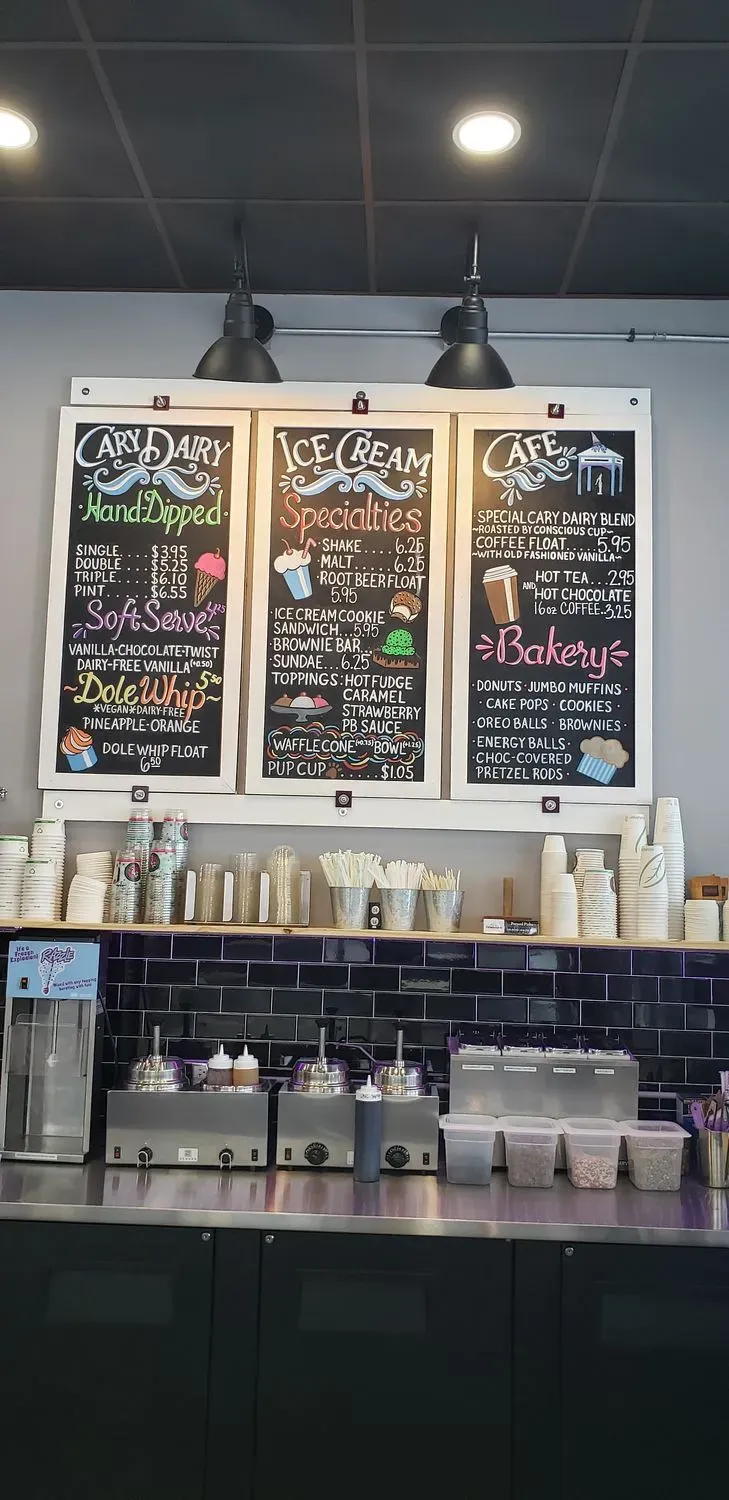 CARY DAIRY
·Hand-Dipped·
SINGLE....$3.95
DOUBLE....$5.25
TRIPLE....$6.10
PINT.....$6.55
Soft Serve 4.25
VANILLA-CHOCOLATE-TWIST
DAIRY-FREE VANILLA (+0.50)
~Dole Whip~ 5.50
*VEGAN*DAIRY-FREE*
PINEAPPLE-ORANGE
DOLE WHIP FLOAT
6.50
ICE CREAM
Specialties
·SHAKE.....6.25
·MALT.....6.25
·ROOT BEER FLOAT
5.95
·ICE CREAM COOKIE
SANDWICH...5.95
·BROWNIE BAR...
·SUNDAE...6.25
TOPPINGS: HOT FUDGE
CARAMEL
STRAWBERRY
PB SAUCE
WAFFLE CONE (+0.75) BOWL (+1.25)
PUP CUP.......$1.05
CAFE
1
·SPECIAL CARY DAIRY BLEND
~ROASTED BY CONSCIOUS CUP~
COFFEE FLOAT.....5.95
~WITH OLD FASHIONED VANILLA~
HOT TEA...2.95
AND HOT CHOCOLATE
16 OZ COFFEE..3.25
Bakery
·DONUTS·JUMBO MUFFINS·
CAKE POPS·COOKIES·
·OREO BALLS·BROWNIES·
·ENERGY BALLS·
·CHOC-COVERED
PRETZEL RODS·
It's a
Frozen
Explosion!
Razzle